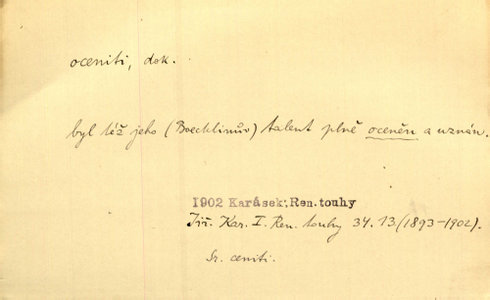 oceniti, dok.
byl též jeho (Boecklinův) talent plně oceněn a uznán.
1902 Karásek, Ren. touhy
Jiř. Kar. I. Ren. touhy 34. 13 (1893-1902).
Sr. ceniti.